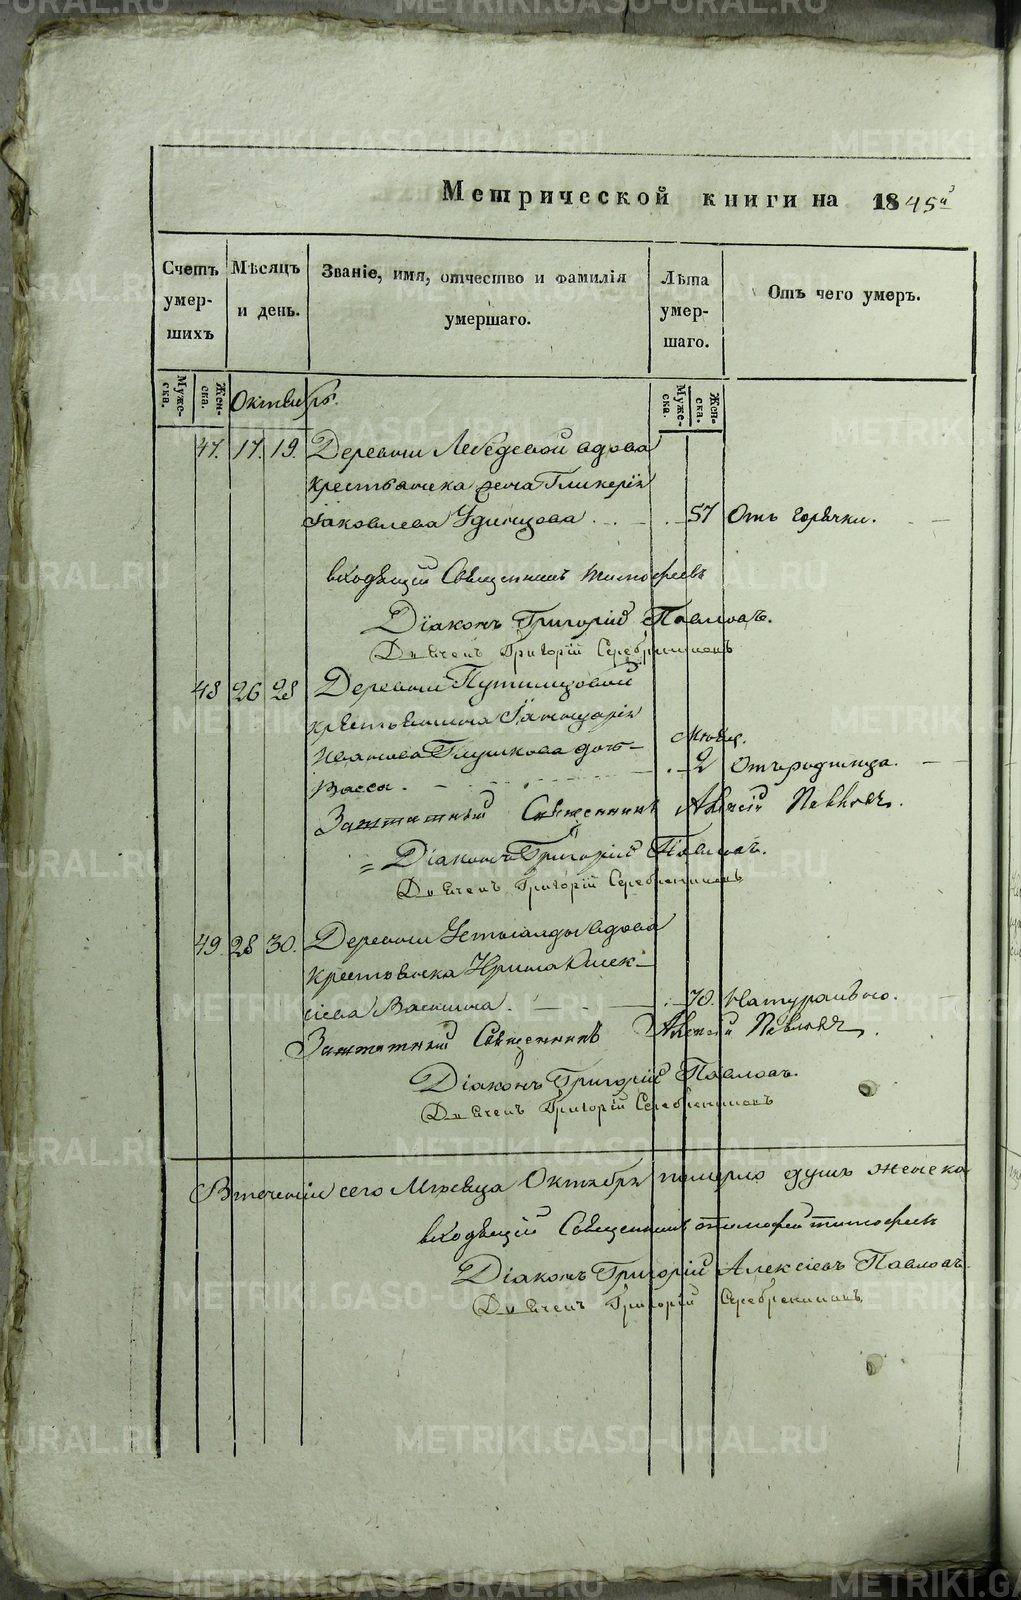 Метрической книги на 1845й
Счетъ умер-шихъ
Мѣсяцъ и день.
Званіе, имя, отчество и фамилія умершаго.
Лѣта умер-шаго.
Отъ чего умеръ.
Муже-ска.
Жен-ска.
Октябрь.
Муже-ска.
Жен-ска.
47. 17. 19. Деревни Лебедевой вдова
крестьянска жена Гликерія
Іаковлева Удинцова 57 Отъ горячки.
входящій Священникъ Тимофеевъ
Діаконъ Григорій Павловъ.
Дьячекъ Григорій Серебренниковъ
48 26 28 Деревни Путиловой
крестьянина Іаннуарія
Иванова Глушкова дочь мѣсяц.
Васса. 2 Отъ родимца.
Заштатный Священникъ Алексій Павловъ.
Діаконъ Григорій Павловъ.
Дьячекъ Григорій Серебренниковъ
49. 28 30. Деревни вдова
крестьянска Ирина Алек-
сіева 70. Натурально.
Заштатный Священникъ Алексій Павловъ.
Діаконъ Григорій Павловъ.
Дьячекъ Григорій Серебренниковъ
В теченіи сего Мѣсяца Октября померло душъ женска
входящій Священникъ Тимофей Тимофеевъ
Діаконъ Григорій Алексіевъ Павловъ.
Дьячекъ Григорій Серебренниковъ
METRIKI.GASO-URAL.RU